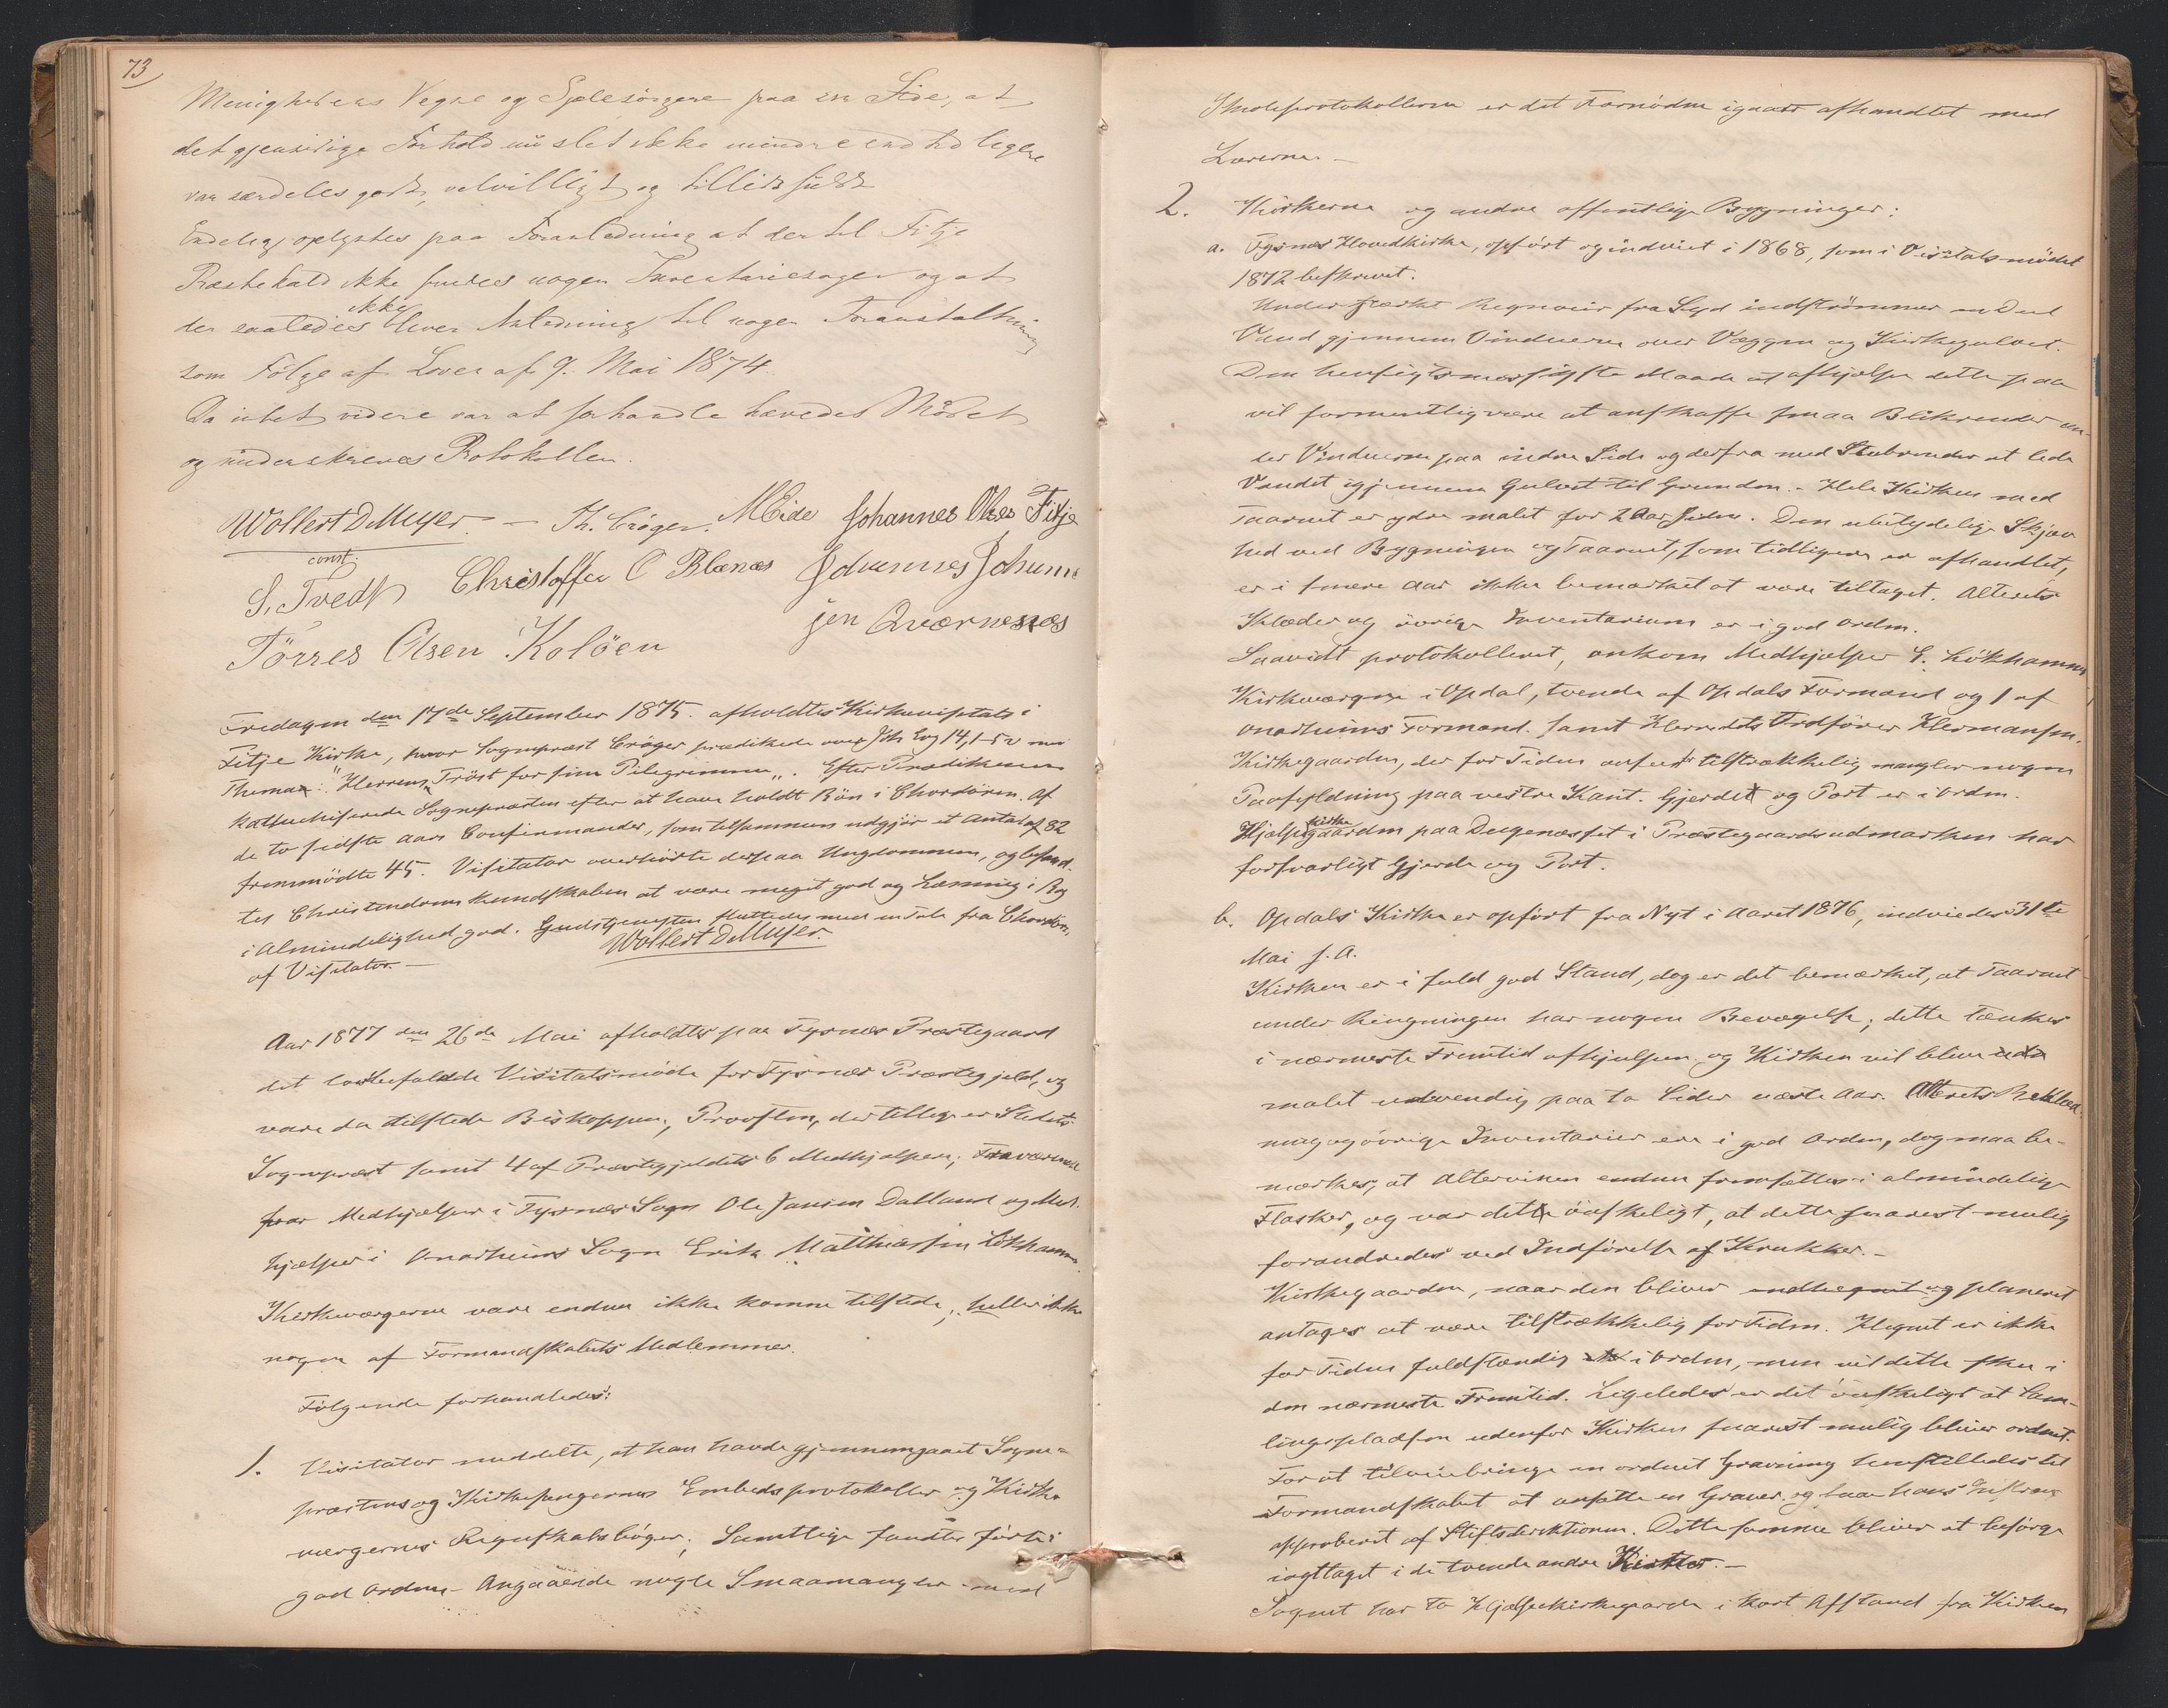 73
Menighedens Vegne og Sjælesörgere paa sin Side, at
det gjensidige Forhold nu slet ikke mindre end tidligere
var særdeles godt, velvilligt og tillidsfuldt
Endelig oplystes paa Foranledning at der til Fitje
Præstekald ikke findes nogen Inventariesager og at
ikke
der saaledes bliver Anledning til nogen Foranstaltning
som Fölge af Loven af 9. Mai 1874
Da intet videre var at forhandle hævedes Mödet
og underskreves Protokollen.
Wollert D Meyer. — Th. Cröger. M Eide Johannes Olsen Fitje
const.
S. Tvedt Christoffer O Blænæs Johannes Johanne
sen Qværnenæs
Törres Olsen Kolöen
Fredagen den 17de September 1875. afholdtes Kirkevisitats i
Fitje Kirke, hvor Sognepræst Cröger prædikede over Joh Ev 14, 1-5 v med
Thema: "Herrens Tröst for sine Pilegrimme". Efter Prædikenen
kathechiserede Sognepræsten efter at have holdt Bön i Chordören. Af
de to sidste Aars Confirmander, som tilsammen udgjör et Antal af 82
fremmödte 45. Visitator overhörte derpaa Ungdommen, og befand-
tes Christendoms Kundskaben at være meget god og Læsning i Bog
i Almindelighed god. Gudstjenesten sluttedes med en Tale fra Chordören
af Visitator. —
Wollert D Meyer.
Aar 1877 den 26de Mai afholdtes paa Tysnæs Præstegaard
det lovbefalede Visitatsmöde for Tysnæs Præstegjeld, og
vare da tilstede Biskoppen, Provsten, der tillige er Stedets
Sognepræst samt 4 af Præstegjeldets 6 Medhjælpere; Fraværende
var Medhjælper i Tysnæs Sogn Ole Jansen Dalland og Med-
hjælper i Onarheims Sogn Erik Matthiassen Lökhammer.
Kirkeværgerne vare endnu ikke komne tilstede, heller ikke
nogen af Formandskabets Medlemmer.
Fölgende forhandledes:
1. Visitator meddelte, at han havde gjennemgaaet Sogne-
præstens og Kirkesangernes Embedsprotokoller og Kirke-
værgernes Regnskabsböger; Samtlige fandtes förte i
god Orden - Angaaende nogle Smaamangler med
Skoleprotokollerne er det Fornödne igaar afhandlet med
Lærerne. —
2. Kirkerne og andre offentlige Bygninger:
a. Tysnæs Hovedkirke, opfört og indviet i 1868, som i Visitatsmödet
1872 beskrevet.
Under stærke Regnveir fra Syd indströmmer en Deel
Vand gjennem Vinduerne over Væggen og Kirkegulvet.
Den hensigtsmæssigste Maade at afhjælpe dette paa
vil formentlig være at anskaffe smaa Blikrender un-
der Vinduerne paa indre Side og derfra med render at lede
Vandet igjennem Gulvet til Grunden. - Hele Kirken med
Taarnet er ydre malet for 2 Aar siden. Den ubetydelige Skjæv
hed ved Bygningen og Taarnet, som tidligere er afhandlet,
er i senere Aar ikke bemærket at være tiltaget. Alterets
Klæder og övrige Inventarium er i god Orden.
Saavidt protokolleret, ankom Medhjælper E. Lökhammer
Kirkeværgerne i Opdal, tvende af Opdals Formænd og 1 af
Onarheims Formænd. samt Herredets Ordförer Hermansen.
Kirkegaarden, der for Tiden ansees tilstrækkelig mangler nogen
Paafyldning paa vestre Kant. Gjerdet og Port er i Orden.
kirke
Hjælpegaarden paa Degenæsset i Præstegaardsudmarken har
forsvarligt Gjerde og Port.
b. Opdals Kirke er opfört fra Nyt i Aaret 1876, indviedes 31te
Mai s. A.
Kirken er i fuld god Stand, dog er det bemærket, at Taarnet
under Ringningen har nogen Bevægelse; dette tænkes
i nærmeste Fremtid afhjulpen og Kirken vil blive
malet udvendig paa to Sider næste Aar. Alterets Beklæd
ning og övrige Inventarier ere i god Orden, dog maa be-
mærkes, at Altervinen endnu fremsættes i almindelige
Flasker, og var det önskeligt, at dette snarest mulig
forandredes ved Indförelse af Krukker. —
Kirkegaarden, naar den bliver indhegnet og planeret
antages at være tilstrækkelig for Tiden. Hegnet er ikke
for Tiden fuldstændig i Orden, men vil dette skee i
den nærmeste Fremtid. Ligeledes er det önskeligt at Sam-
lingspladsen udenfor Kirken snarest mulig bliver ordnet.
For at tilveiebringe en ordnet Gravning henstilledes til
Formandskabet at ansætte en Graver og faa hans Instrux
approberet af Stiftsdirektionen. Dette samme bliver at besörge
iagttaget i de tvende andre Kirker. —
Sognet har to Hjælpekirkegaarde i kort Afstand fra Kirken